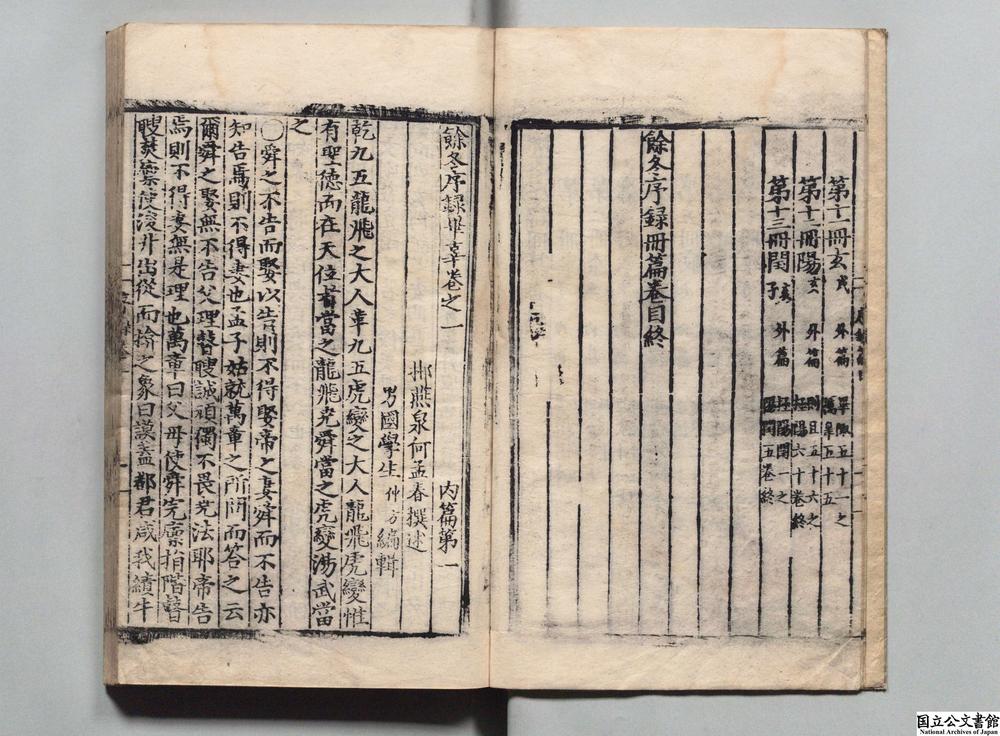 第十一冊玄 戌 外篇 畢陬五十一之
萬臯五十五
第十二冊陽 亥 外篇 則且五十六之
極陽六十卷終
第十三冊閏 子 外篇 極陽閏一之
陽閏五卷終
餘冬序録冊篇卷目終
餘冬序録畢辜卷之一 内篇第一
郴燕泉何孟春撰述
男國學生仲方編輯
乾九五龍飛之大人革九五虎變之大人龍飛虎變惟
有聖德而在天位者當之龍飛堯舜當之虎變湯武當
之
〇舜之不告而娶以告則不得娶帝之妻舜而不告亦
知告焉則不得妻也孟子姑就萬章之所問而答之云
爾舜之娶無不告父理瞽瞍誠頑獨不畏堯法耶帝告
焉則不得妻無是理也萬章曰父母使舜完廩捐階瞽
瞍焚廩使浚井出從而揜之象曰謨蓋都君咸我績牛
国立公文書館
National Archives of Japan